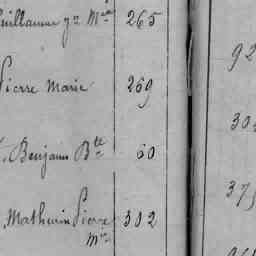 Guillaume yz Mie 265
Pierre Marie 269
Benjamn Bte 60
Mathurin Pierre 302
Mie
92
30
375